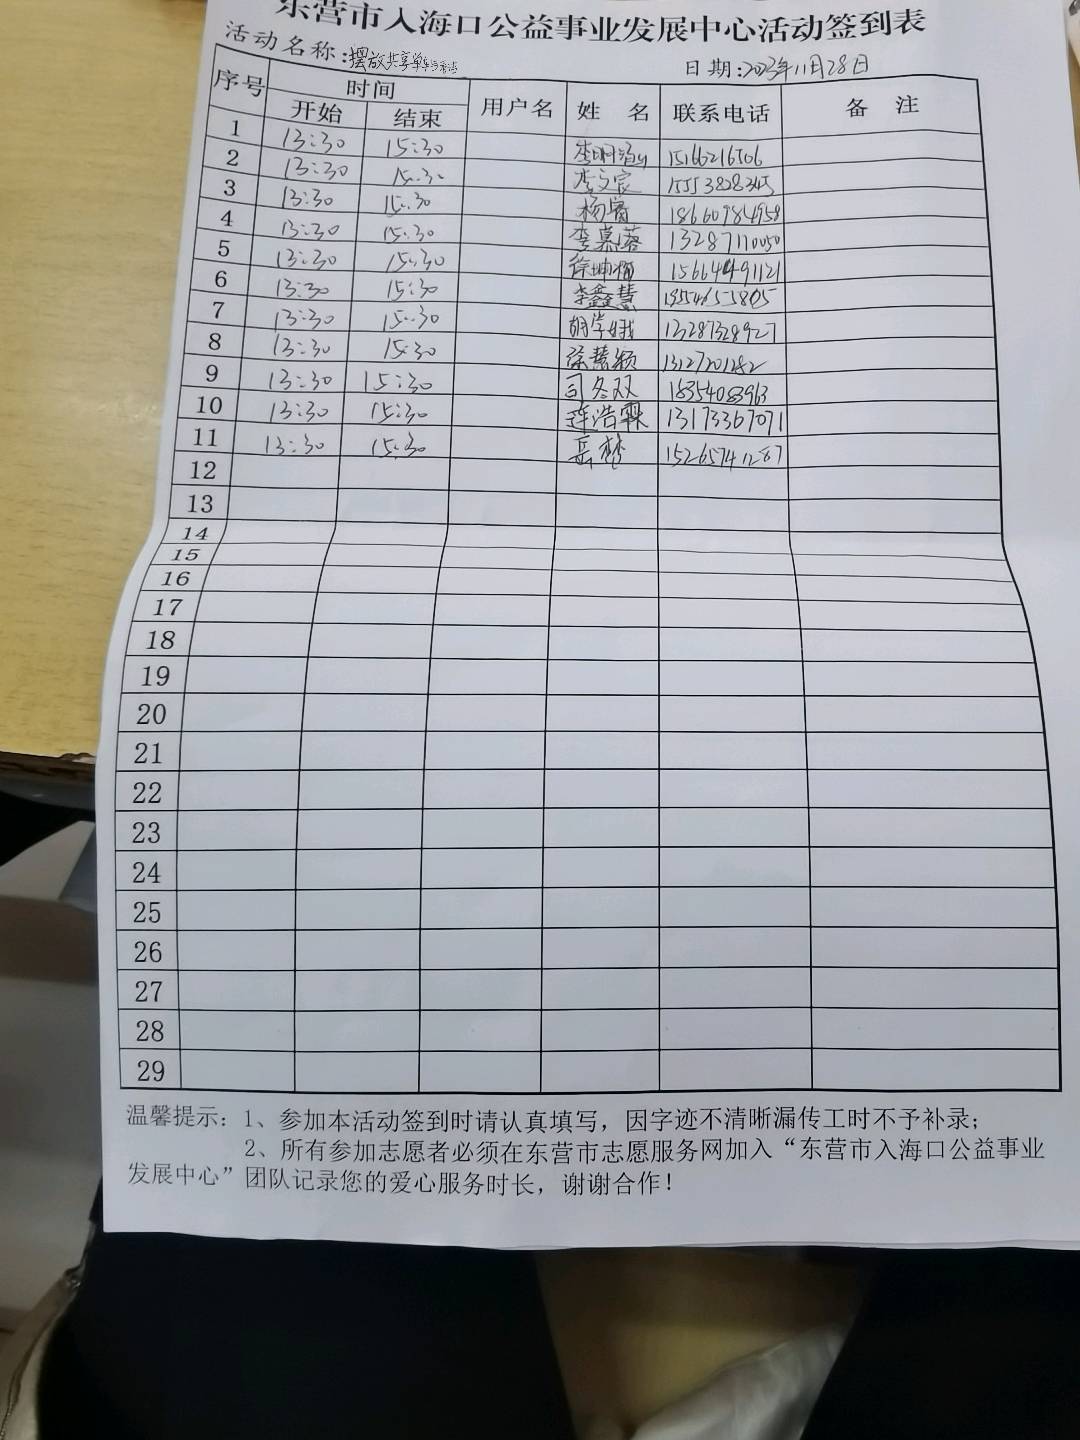 东营市入海口公益事业发展中心活动签到表
活动名称:摆放共享单车 日期:2023年11月28日
序号 时间 用户名 姓 名 联系电话 备 注
开始 结束
1 13:30 15:30 15166216506
2 13:30 15:30 李文宸 15553828345
3 13:30 15:30 杨霄 18660984958
4 13:30 15:30 李慕蓉 13287110050
5 13:30 15:30 徐坤 15664491121
6 13:30 15:30 李鑫慧
7 13:30 15:30 胡学娥 13287328927
8 13:30 15:30 徐慧颖 13127201282
9 13:30 15:30 司冬双 18354083963
10 13:30 15:30 连浩霖 13173367071
11 13:30 15:30 岳梦 15265741287
12
13
14
15
16
17
18
19
20
21
22
23
24
25
26
27
28
29
温馨提示：1、参加本活动签到时请认真填写，因字迹不清晰漏传工时不予补录；
2、所有参加志愿者必须在东营市志愿服务网加入“东营市入海口公益事业
发展中心”团队记录您的爱心服务时长，谢谢合作！